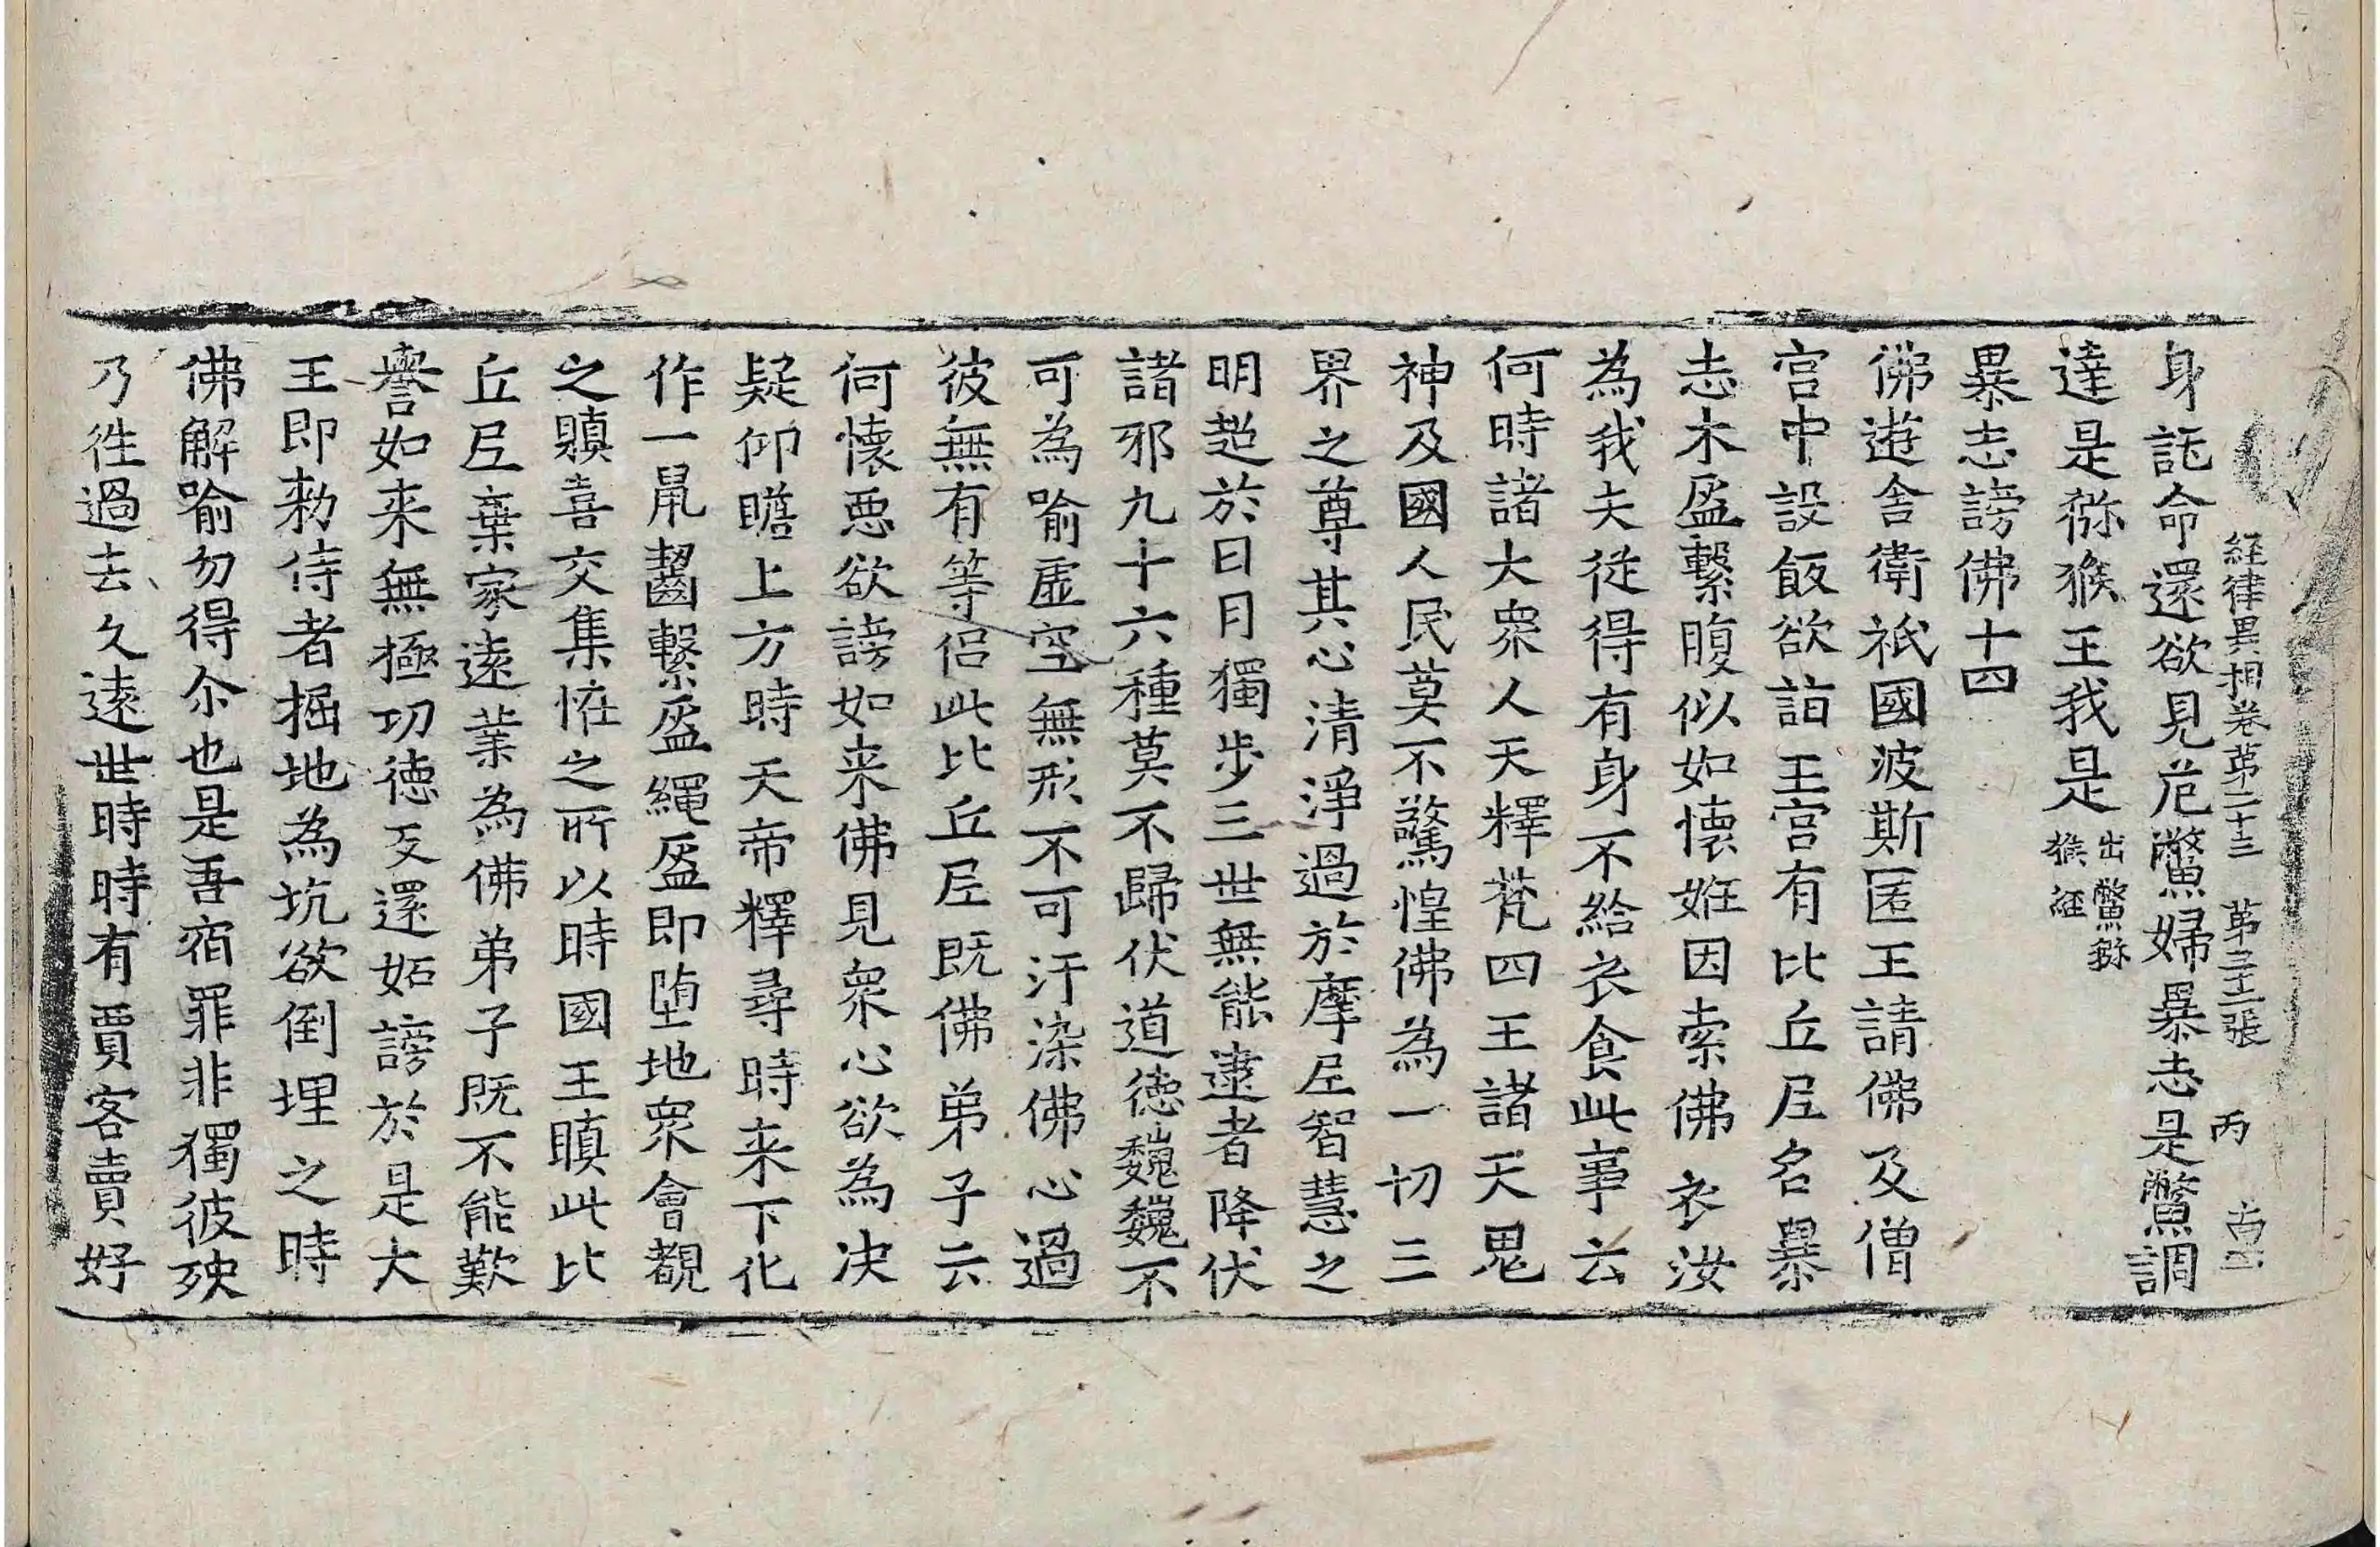 経律異相卷第二十三 第三十二張 丙
身託命還欲見危鼈婦暴志是鼈調
達是猕猴王我是
出鼈猕
猴経
暴志謗佛十四
佛遊舎衛祇國波斯匿王請佛及僧
宫中設飯欲詣王宫有比丘尼名暴
志木盂繫腹似如懷妊因索佛衣汝
為我夫從得有身不給衣食此事云
何時諸大衆人天釋梵四王諸天鬼
神及國人民莫不驚惶佛為一切三
界之尊其心清淨過於摩尼智慧之
明超於日月獨步三世無能逮者降伏
諸邪九十六種莫不歸伏道徳巍巍不
可為喻虛空無形不可汙染佛心過
彼無有等侣此比丘尼既佛弟子云
何懷惡欲謗如来佛見衆心欲為决
疑仰瞻上方時天帝釋尋時来下化
作一鼠齧繫盂繩盂即堕地衆會覩
之瞋喜交集恠之所以時國王瞋此比
丘尼棄家遠業為佛弟子既不能歎
譽如来無極功徳反還妬謗於是大
王即勑侍者掘地為坑欲倒埋之時
佛解喻勿得尒也是吾宿罪非獨彼殃
乃徃過去久遠世時時有賈客賣好